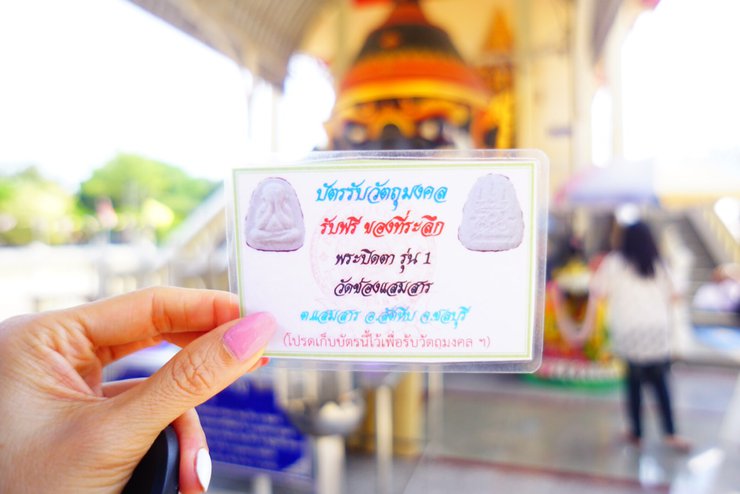 บัตรรับวัตถุมงคล
รับฟรี ของที่ระลึก
พระปิดตา รุ่น 1
วัดช่องแสมสาร
ต.แสมสาร อ.สัตหีบ จ.ชลบุรี
(โปรดเก็บบัตรนี้ไว้เพื่อรับวัตถุมงคล ฯ)